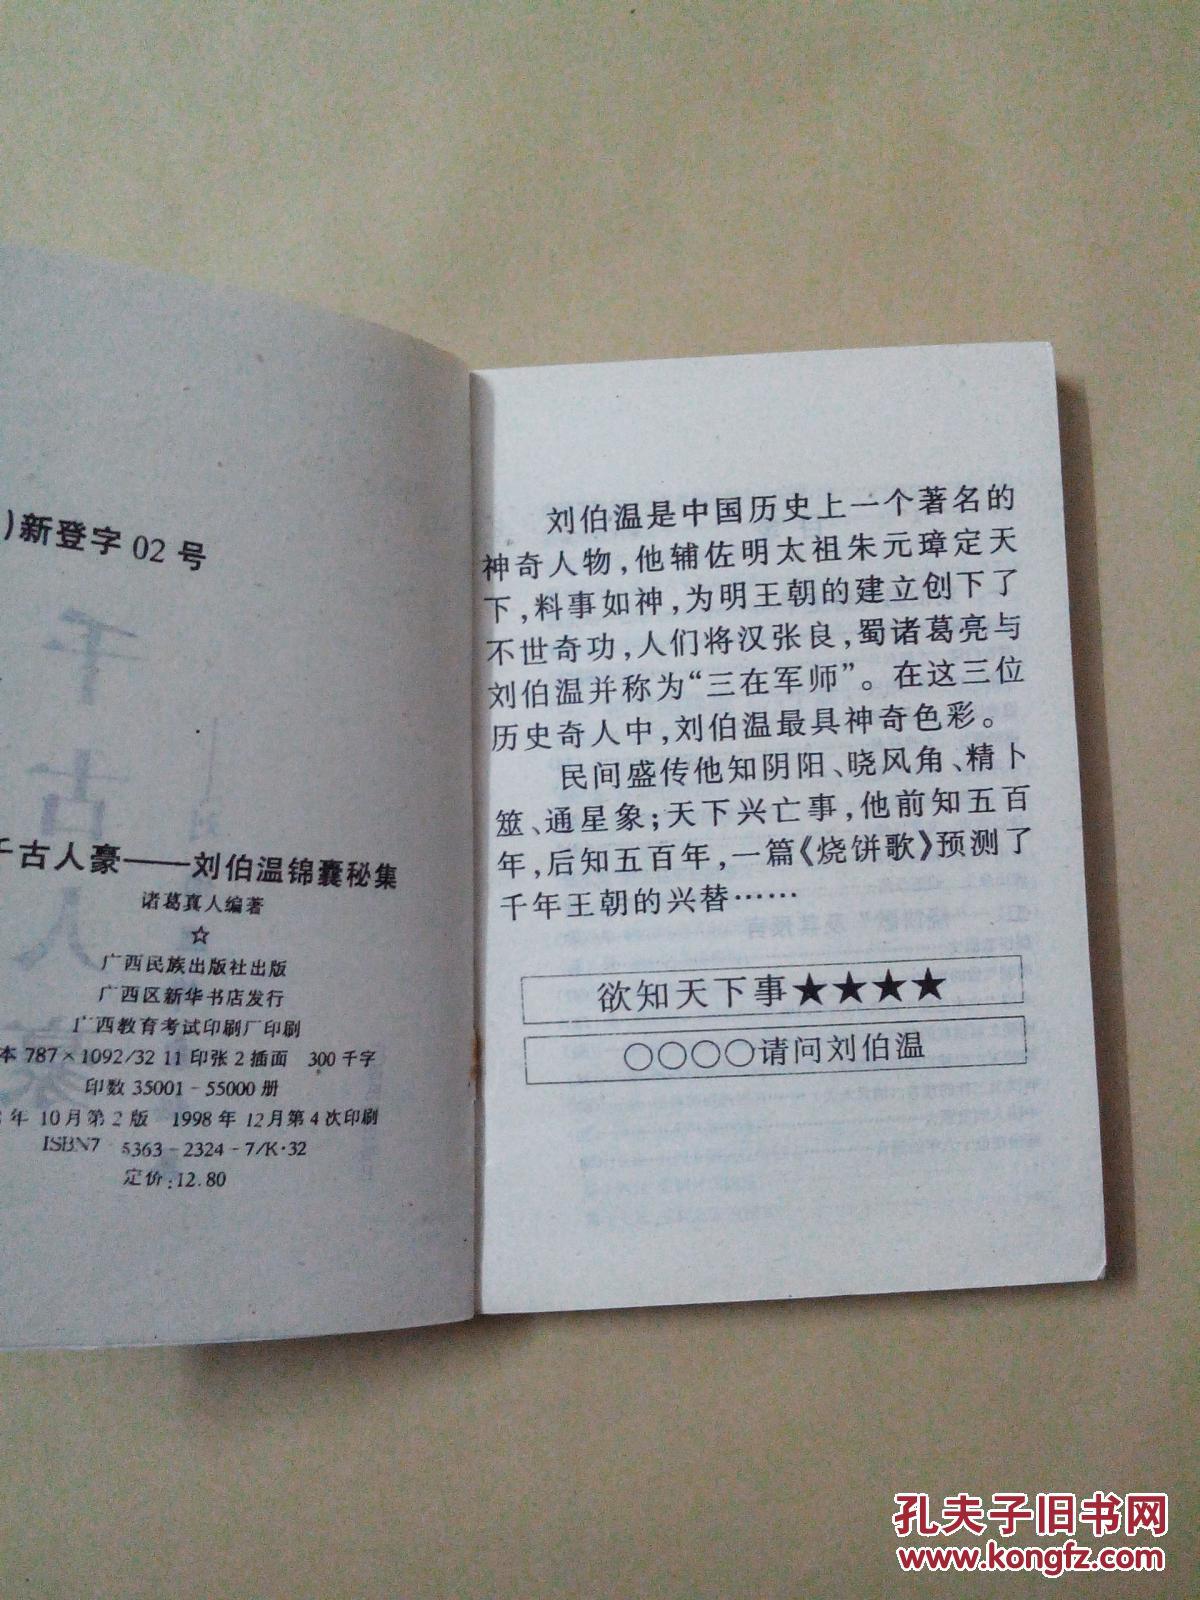 )新登字 02 号
千古人豪——刘伯温锦囊秘集
诸葛真人编著
☆
广西民族出版社出版
广西区新华书店发行
广西教育考试印刷厂印刷
本 787×1092/32 11 印张 2 插面 300 千字
印数 35001-55000 册
年 10 月第 2 版 1998 年 12 月第 4 次印刷
ISBN7-5363-2324-7/K·32
定价:12.80
刘伯温是中国历史上一个著名的
神奇人物,他辅佐明太祖朱元璋定天
下,料事如神,为明王朝的建立创下了
不世奇功,人们将汉张良,蜀诸葛亮与
刘伯温并称为“三在军师”。在这三位
历史奇人中,刘伯温最具神奇色彩。
民间盛传他知阴阳、晓风角、精卜
筮、通星象;天下兴亡事,他前知五百
年,后知五百年,一篇《烧饼歌》预测了
千年王朝的兴替……
欲知天下事★★★★
○○○○请问刘伯温
孔夫子旧书网
www.kongfz.com